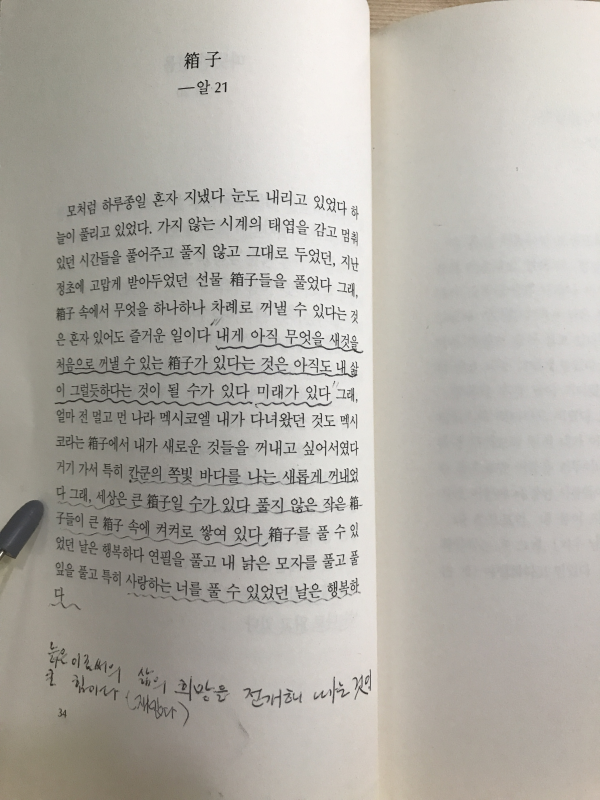 箱子
—알 21
모처럼 하루종일 혼자 지냈다 눈도 내리고 있었다 하
늘이 풀리고 있었다. 가지 않는 시계의 태엽을 감고 멈춰
있던 시간들을 풀어주고 풀지 않고 그대로 두었던, 지난
정초에 고맙게 받아두었던 선물 箱子들을 풀었다 그래,
箱子 속에서 무엇을 하나하나 차례로 꺼낼 수 있다는 것
은 혼자 있어도 즐거운 일이다 내게 아직 무엇을 새것을
처음으로 꺼낼 수 있는 箱子가 있다는 것은 아직도 내 삶
이 그럴듯하다는 것이 될 수가 있다 미래가 있다 그래,
얼마 전 멀고 먼 나라 멕시코엘 내가 다녀왔던 것도 멕시
코라는 箱子에서 내가 새로운 것들을 꺼내고 싶어서였다
거기 가서 특히 칸쿤의 쪽빛 바다를 나는 새롭게 꺼내었
다 그래, 세상은 큰 箱子일 수가 있다 풀지 않은 작은 箱
子들이 큰 箱子 속에 켜켜로 쌓여 있다 箱子를 풀 수 있
었던 날은 행복하다 연필을 풀고 내 낡은 모자를 풀고 풀
잎을 풀고 특히 사랑하는 너를 풀 수 있었던 날은 행복하
다
늙은이로써의 삶의 희망을 전개해
힘이다
34